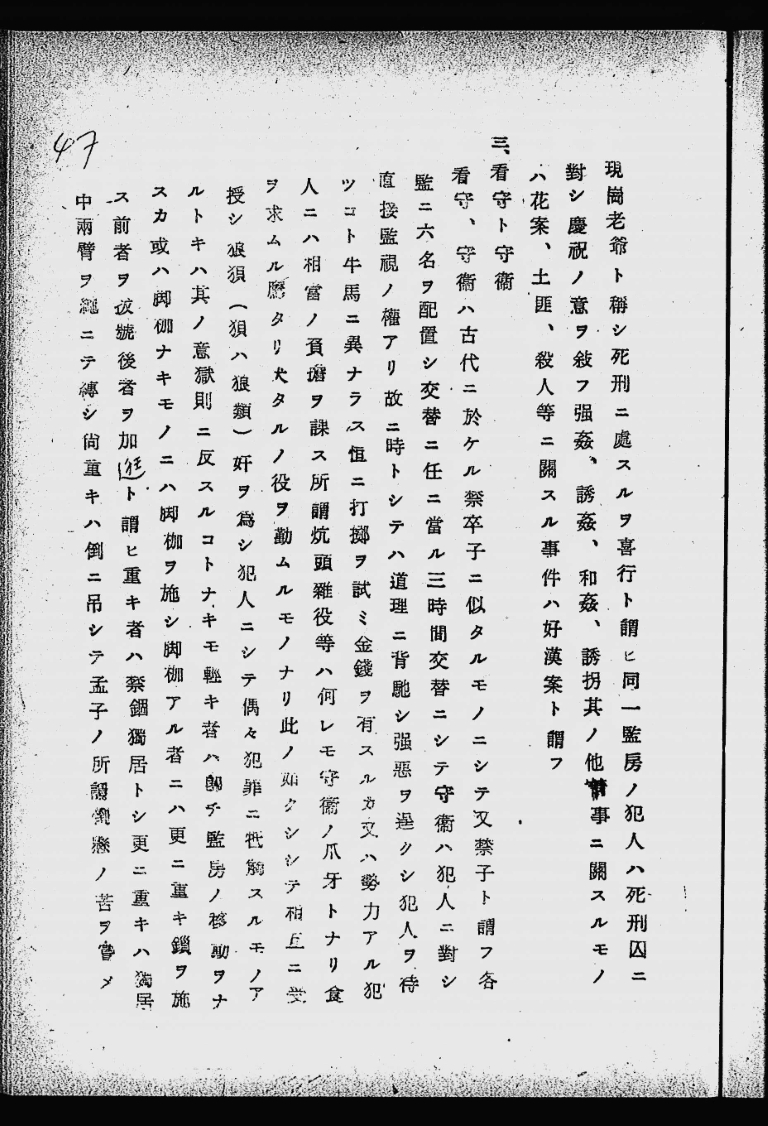 現崗老爺ト稱シ死刑ニ處スルヲ喜行ト謂ヒ同一監房ノ犯人ハ死刑囚ニ
對シ慶祝ノ意ヲ敍フ强姦、誘姦、和姦、誘拐其ノ他情事ニ關スルモノ
ハ花案、土匪、殺人等ニ關スル事件ハ好漢案ト謂フ
三、看守ト守衞
看守、守衞ハ古代ニ於ケル禁卒子ニ似タルモノニシテ又禁子ト謂フ各
監ニ六名ヲ配置シ交替ニ任ニ當ル三時間交替ニシテ守衞ハ犯人ニ對シ
直接監視ノ權アリ故ニ時トシテハ道理ニ背馳シ强惡ヲ逞クシ犯人ヲ待
ツコト牛馬ニ異ナラス恒ニ打擲ヲ試ミ金錢ヲ有スルカ又ハ勢力アル犯
人ニハ相當ノ負擔ヲ課ス所謂炕頭雜役等ハ何レモ守衞ノ爪牙トナリ食
ヲ求ムル鷹タリ犬タルノ役ヲ勤ムルモノナリ此ノ如クシテ相互ニ受
授シ狼狽（狽ハ狼類）奸ヲ爲シ犯人ニシテ偶々犯罪ニ牴觸スルモノア
ルトキハ其ノ意獄則ニ反スルコトナキモ輕キ者ハ卽チ監房ノ移動ヲナ
スカ或ハ脚枷ナキモノニハ脚枷ヲ施シ脚枷アル者ニハ更ニ重キ鎖ヲ施
ス前者ヲ號後者ヲ加ト謂ヒ重キ者ハ禁錮獨居トシ更ニ重キハ獨居
中兩臂ヲ繩ニテ縛シ尙重キハ倒ニ吊シテ孟子ノ所謂倒懸ノ苦ヲ嘗メ
47